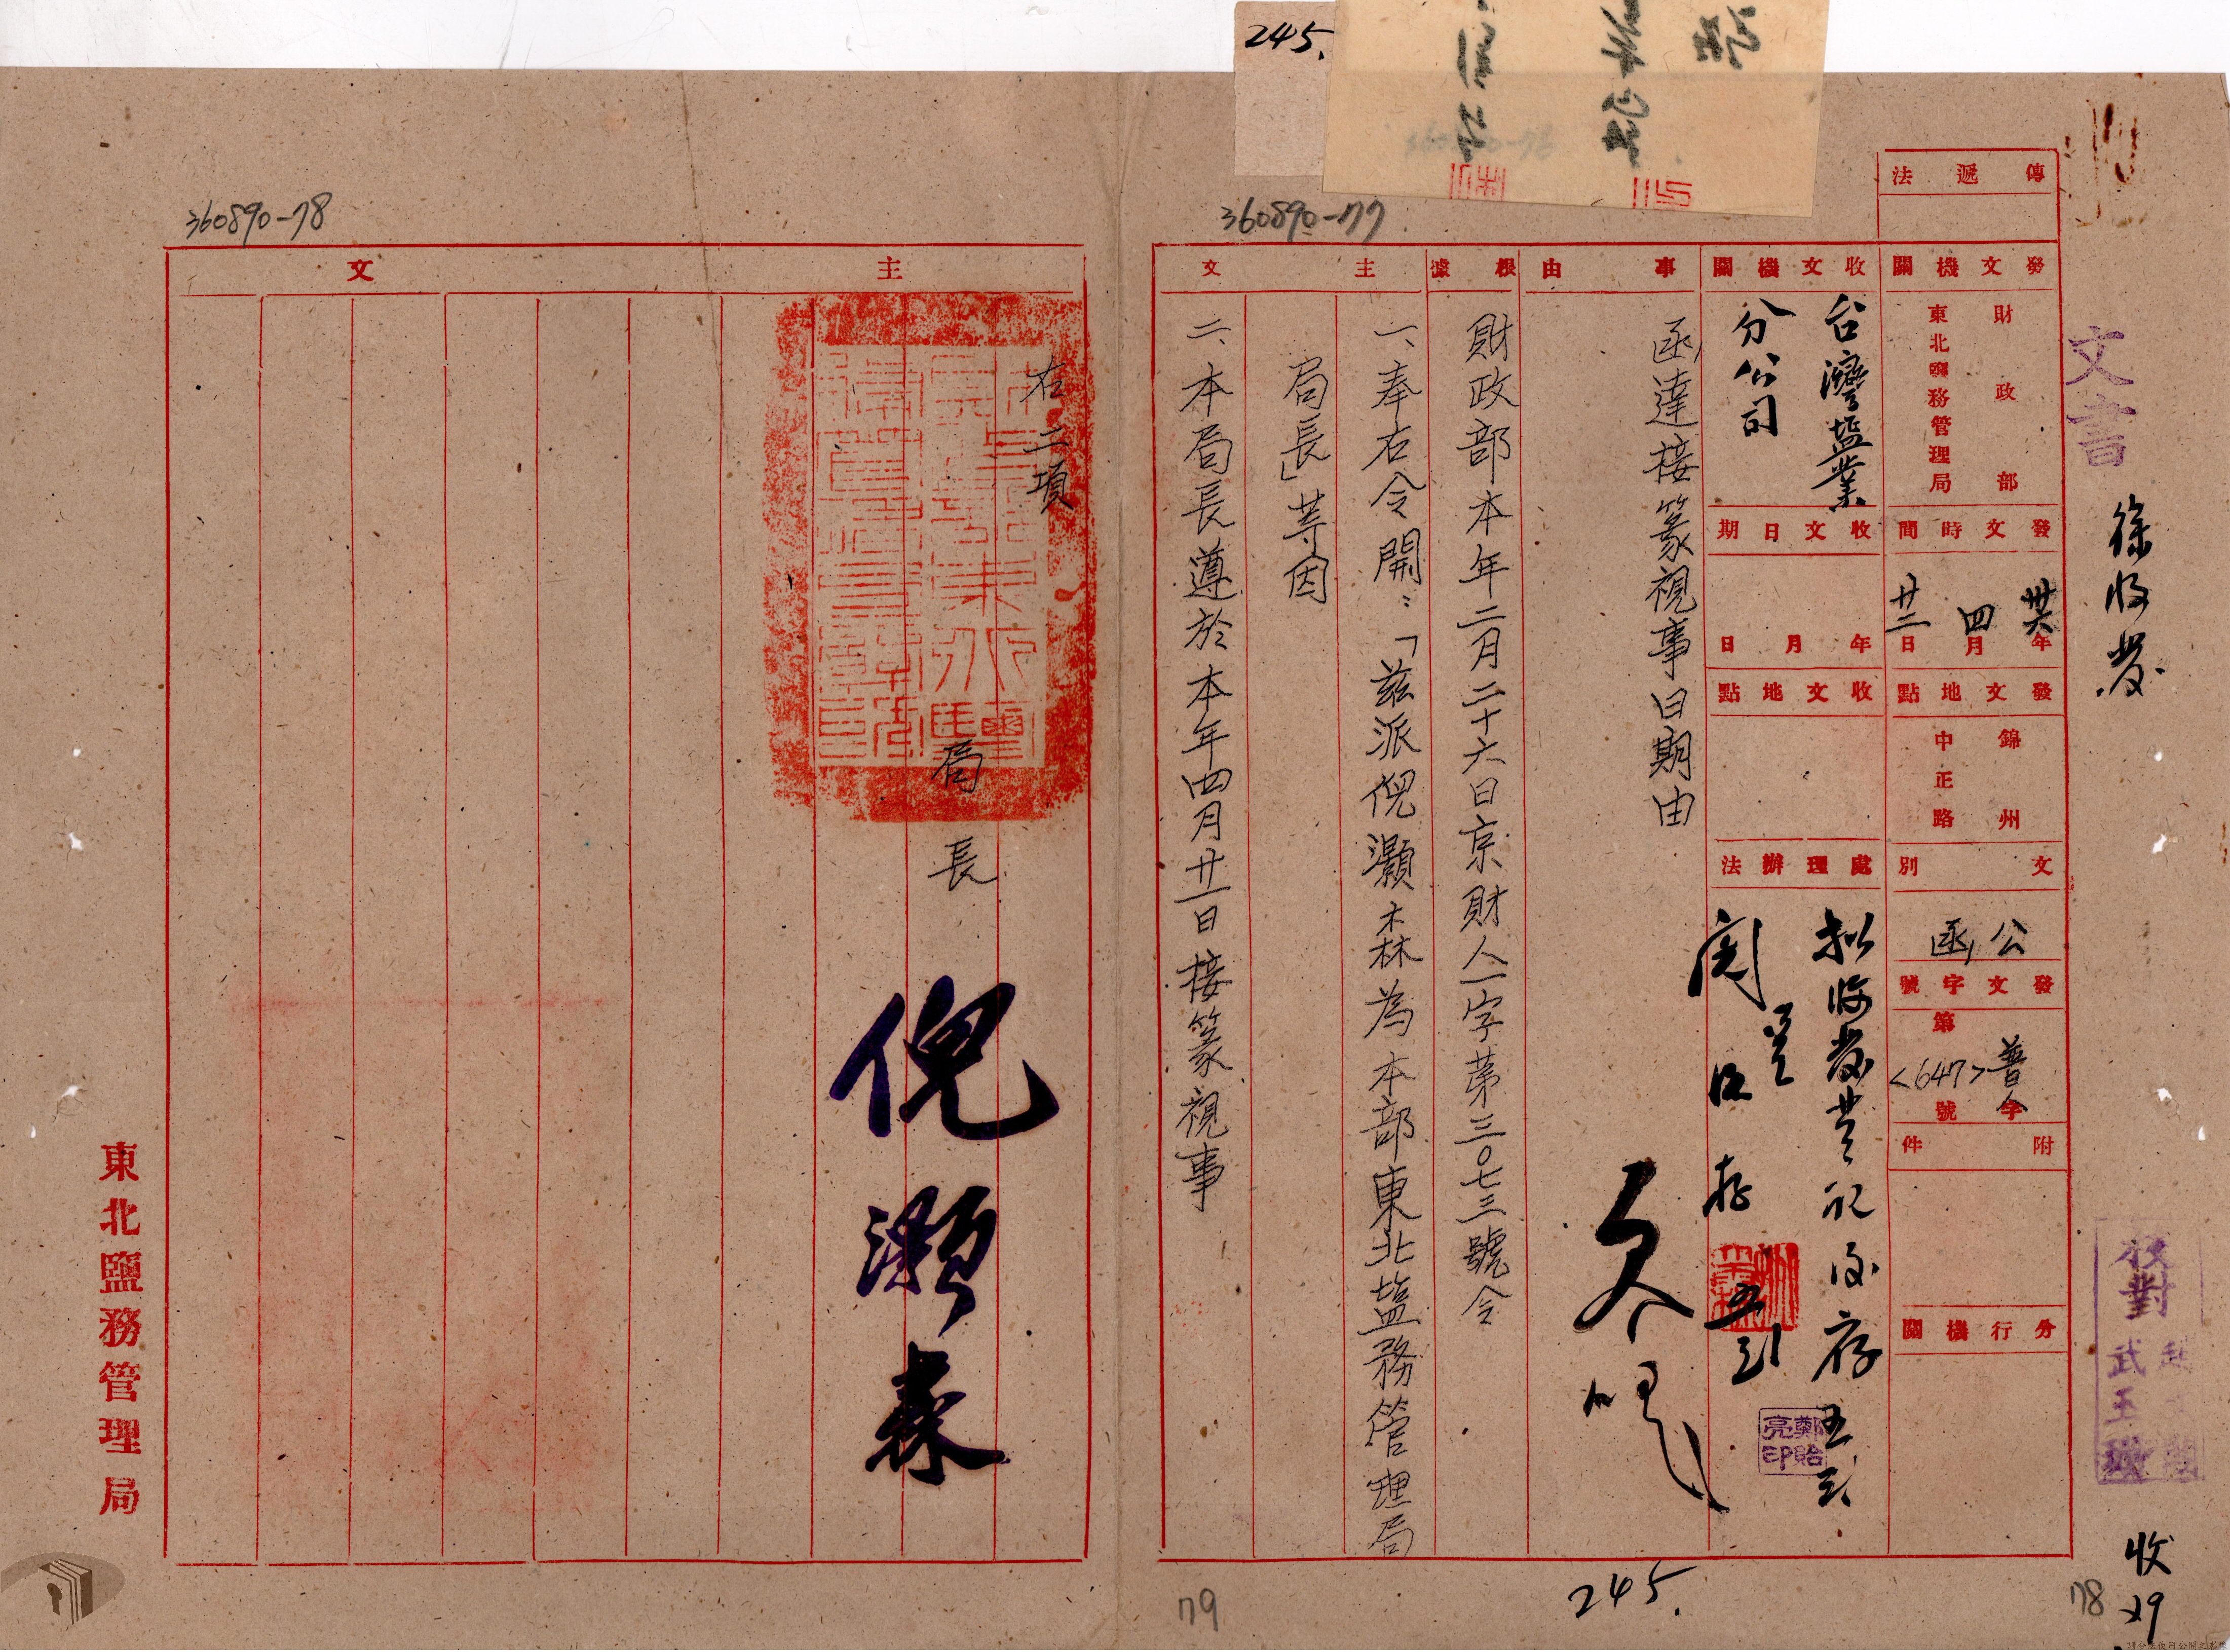 245.
360890-77
傳遞法
發文機關
財政部
東北鹽務管理局
發文時間
卅六年四月廿二日
發文地點
錦州
中正路
文別
公函
發文字號
普人字
第<647>號
附件
分行機關
收文機關
台灣塩業
分公司
收文日期
年月日
收文地點
處理辦法
閱
存
鄭貽
亮印
事由
函達接篆視事日期由
根據
財政部本年二月二十六日京財人一字第三〇七三號令
主文
一、奉右令開：「茲派倪灝森為本部東北塩務管理局
局長」等因
二、本局長遵於本年四月廿一日接篆視事
文書
校對
武玉
收
29
78
245.
79
360890-78
主文
右二項
局長 倪灝森
東北鹽務管理局